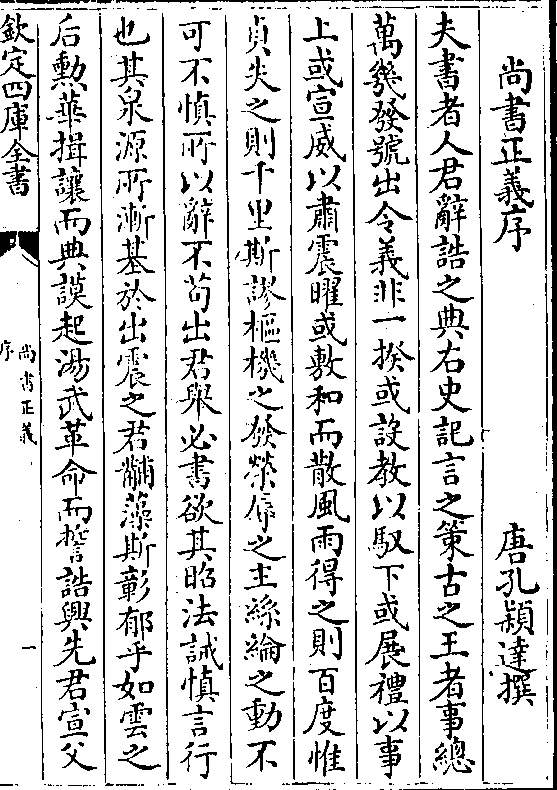 尚書正義序
唐孔穎達撰
夫書者人君辭誥之典右史記言之策古之王者事總
萬幾發號出令義非一揆或設教以馭下或展禮以事
上或宣威以肅震曜或敷和而散風雨得之則百度惟
貞失之則千里斯謬樞機之發榮辱之主絲綸之動不
可不慎所以辭不苟出君舉必書欲其昭法誡慎言行
也其泉源所漸基於出震之君黼藻斯彰郁乎如雲之
后勳華揖讓而典謨起湯武革命而誓誥興先君宣父
欽定四庫全書
尚書正義
序
一